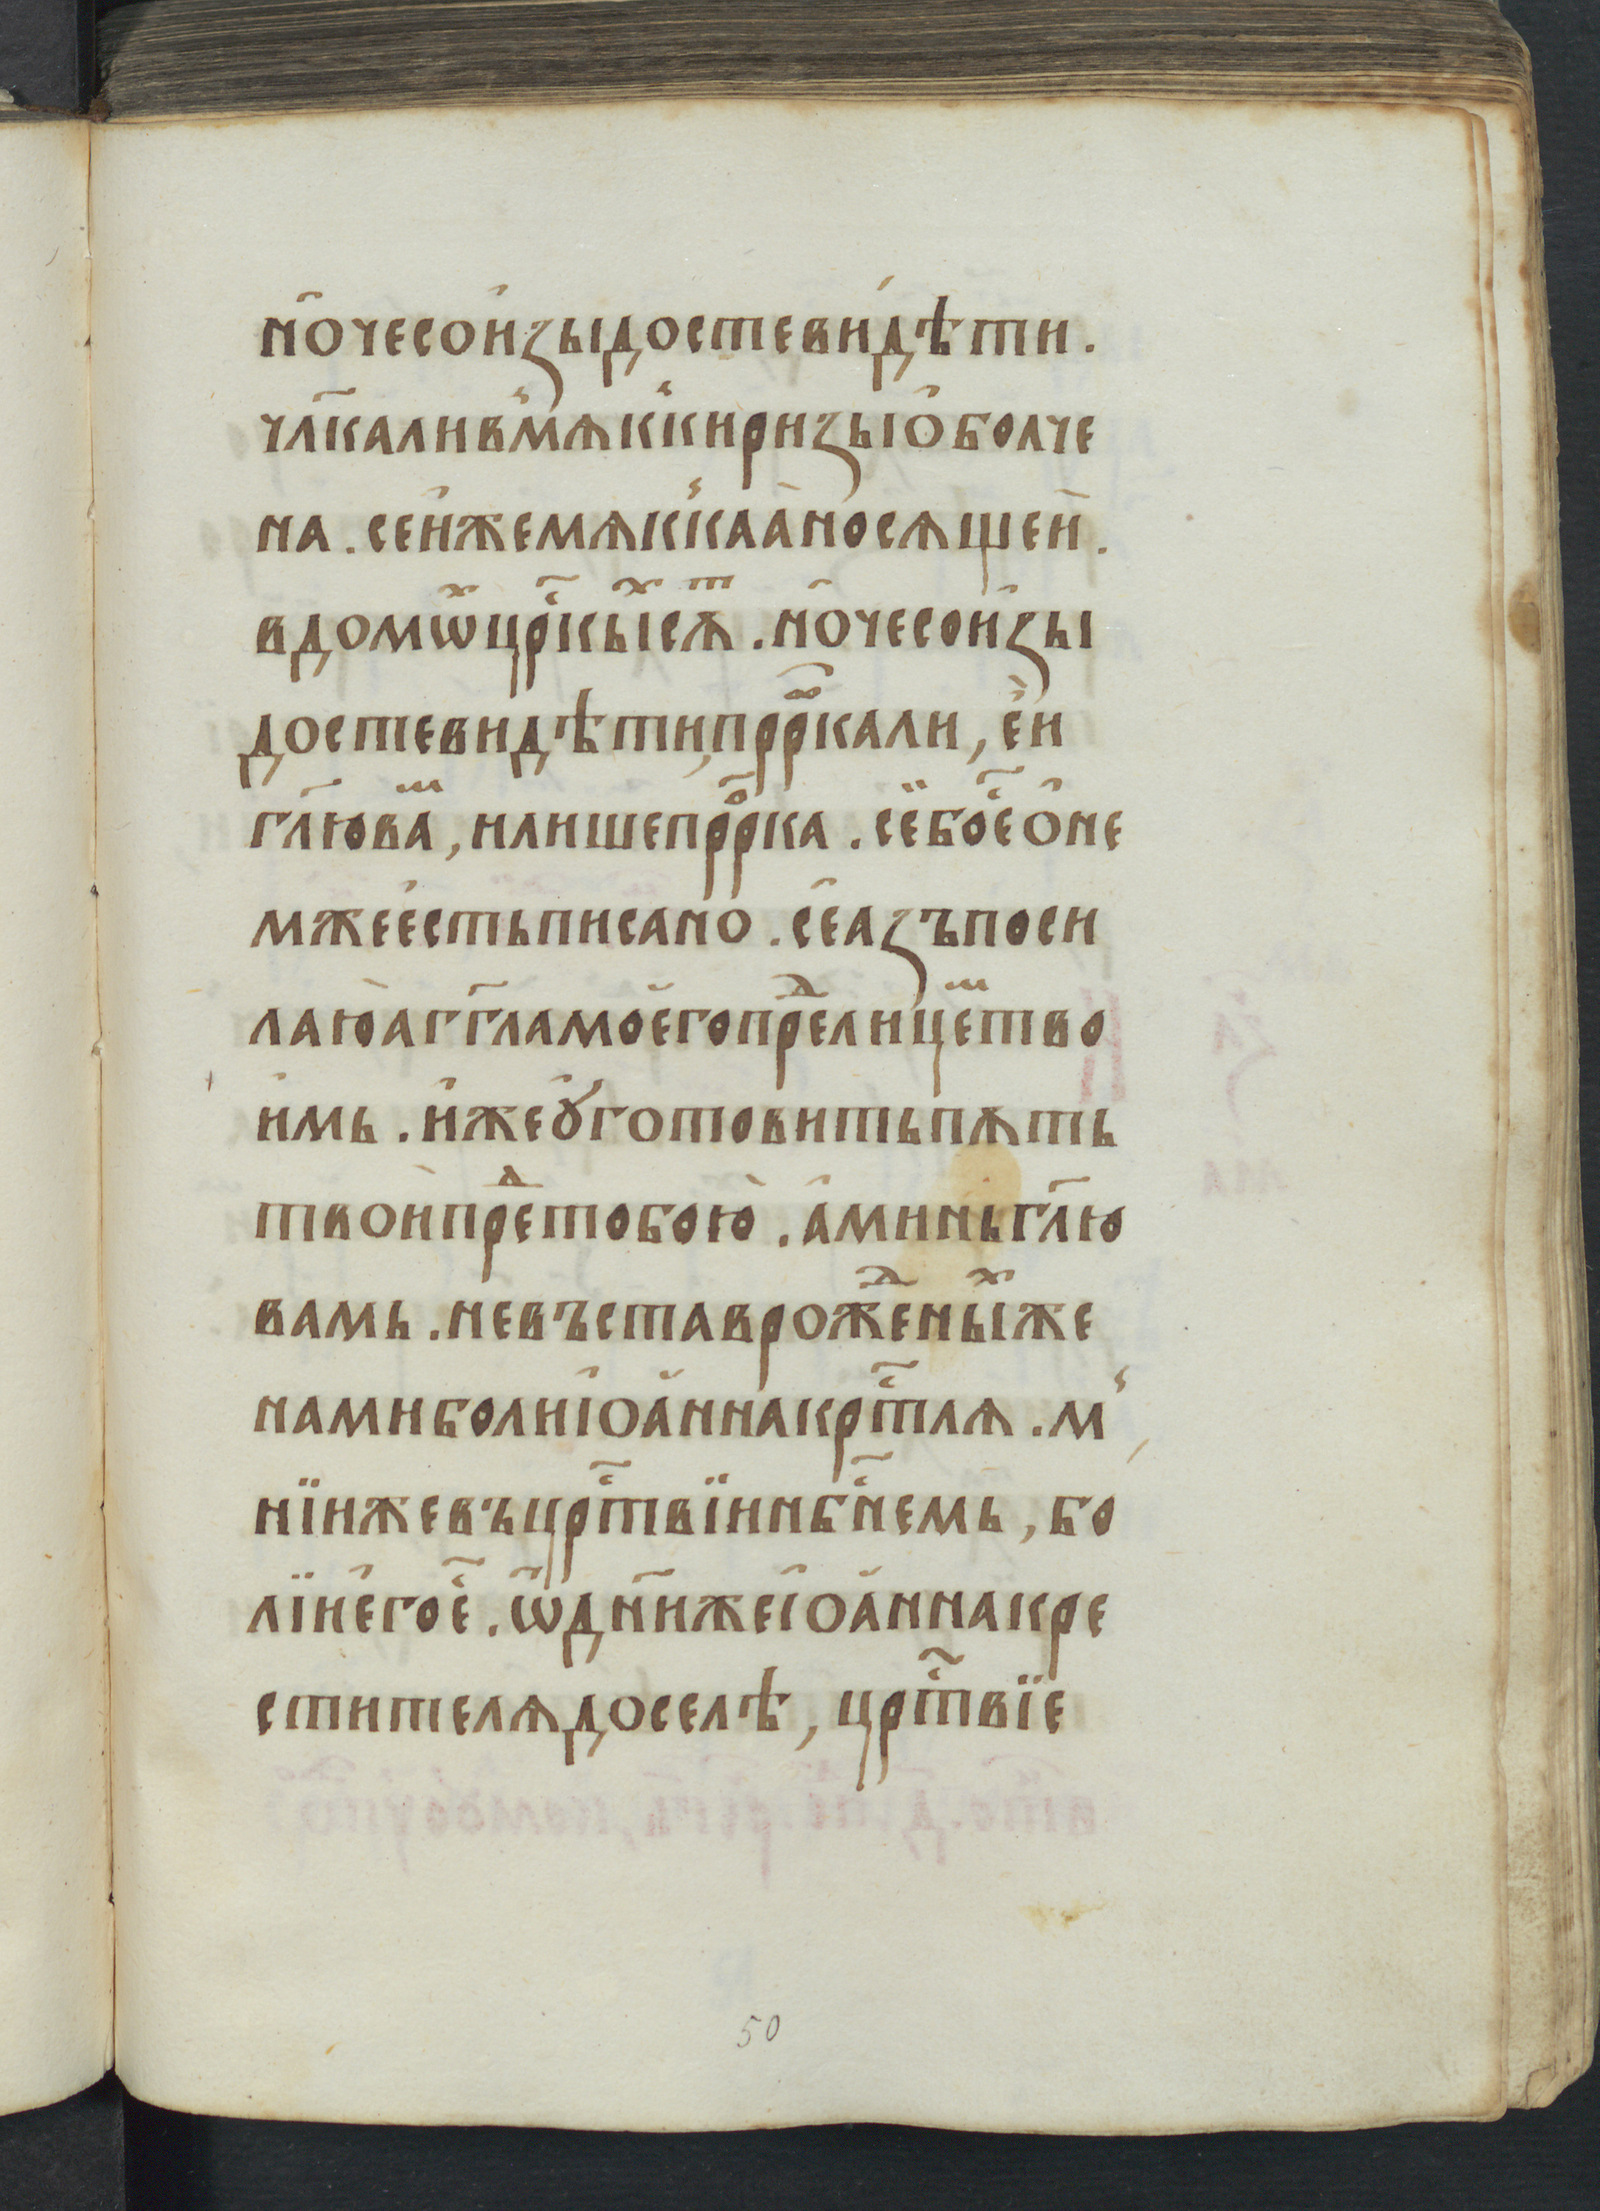 н҃очесои҆зыдостевидѣти.
чл҃каливм꙽ѧк꙽кирꙇзыѡ҆болче
на. сеи҆жемѧк꙽каꙗ҆носѧщеи҆.
вдомѡⷯцр҇҃кыⷯсѧⷮ. н҃очесои҆зы
достевидѣти, прⷪ҇ркали, е҆и
гл҃юваⷨ, илишепрⷪ҇рка. се҆бое҇҃о҆не
мжее҆стьписано. се҆азъпоси
лаю҆агг҃ламое҆гопреⷣлицеⷨтво
и҆мь. и҆жеꙋ҆готовитьпѧть
твои҆преⷣтобою҆. а҆миньгл҃ю
вамь. невъставрожеⷣныⷯже
намиболиі҆оа҆ннакрⷭ҇тлѧ. м꙽
нїижевъцрⷭ҇твїинбⷭ҇немь, бо
лїие҆гое҇҃. ѿдн҃ижеі҆оа҆ннакре
стителѧдоселѣ, црⷭ҇твїе
50